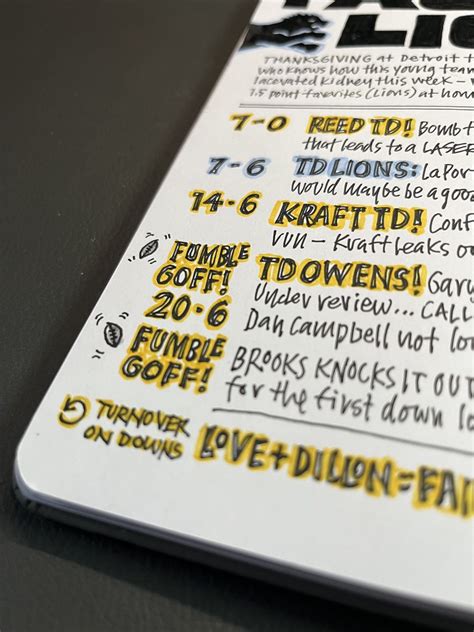 LIO
THANKSGIVING at Detroit t
who knows how this young team
lacerated kidney this week –
7.5 point favorites (Lions) at hom
7-0 REED TD! Bomb f
that leads to a LASER
7-6 TD LIONS: LaPor
would maybe be a goo
14-6 KRAFT TD! Conf
run – Kraft leaks o
FUMBLE
GOFF!
20-6
TD OWENS! Gary
Under review... CALL
Dan Campbell not lo
FUMBLE
GOFF!
BROOKS KNOCKS IT OUT
for the first down l
TURNOVER
ON DOWNS
LOVE+DILLON=FAI